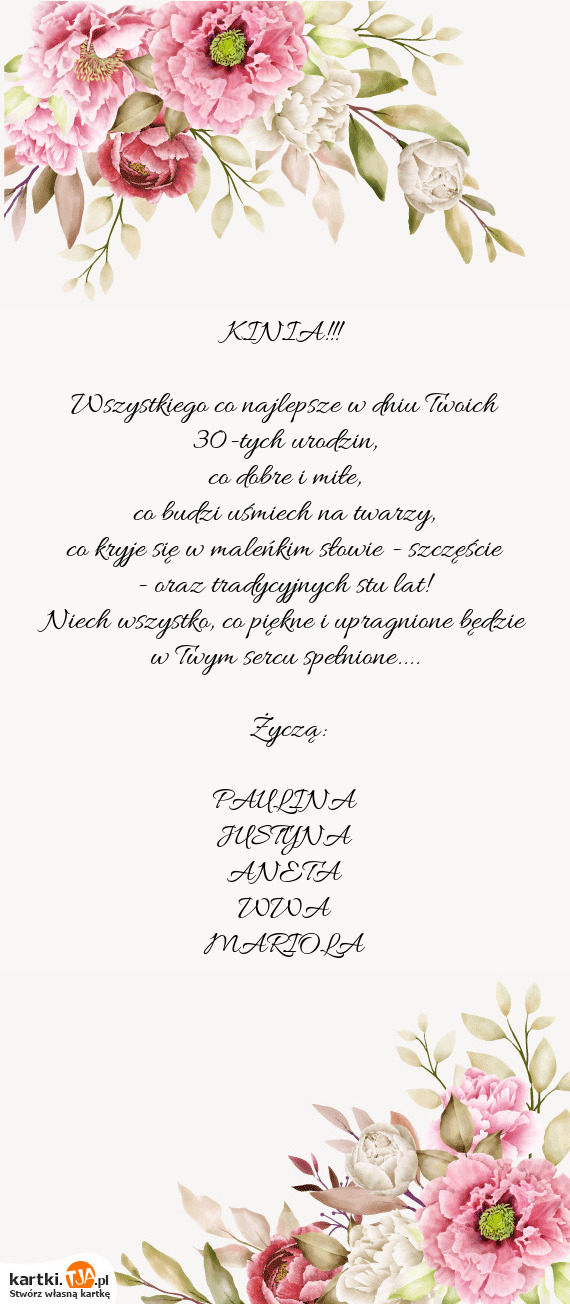 KINIA!!!
Wszystkiego co najlepsze w dniu Twoich
30-tych urodzin,
co dobre i miłe,
co budzi uśmiech na twarzy,
co kryje się w maleńkim słowie - szczęście
- oraz tradycyjnych stu lat!
Niech wszystko, co piękne i upragnione będzie
w Twym sercu spełnione....
Życzą:
PAULINA
JUSTYNA
ANETA
WWA
MARIOLA
kartki.TJA.pl
Stwórz własną kartkę